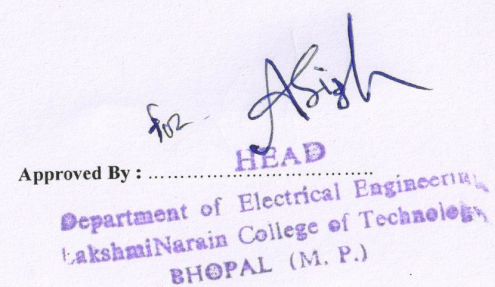 for ASigh
HEAD
Approved By : ......................................
Department of Electrical Engineering
LakshmiNarain College of Technology
BHOPAL (M. P.)